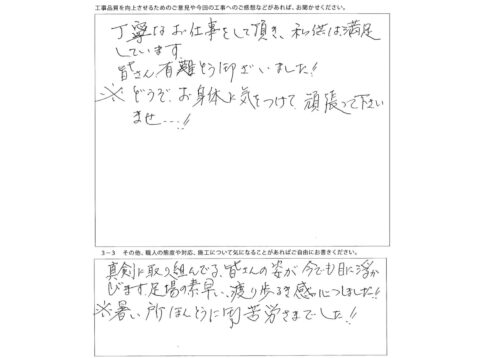 工事品質を向上させるためのご意見や今回の工事へのご感想などがあれば、お聞かせください。
丁寧なお仕事をして頂き、私供は満足
しています。
皆さん有難とう御ざいました!!
※どうぞ、お身体に気をつけて頑張って下さい
ませ…!!
3-3 その他、職人の態度や対応、施工について気になることがあればご自由にお書きください。
真剣に取り組んでる、皆さんの姿が今でも目に浮か
びます。足場の素早い、渡り歩るき感心しました!!
※暑い所ほんとうに御苦労さまでした!!